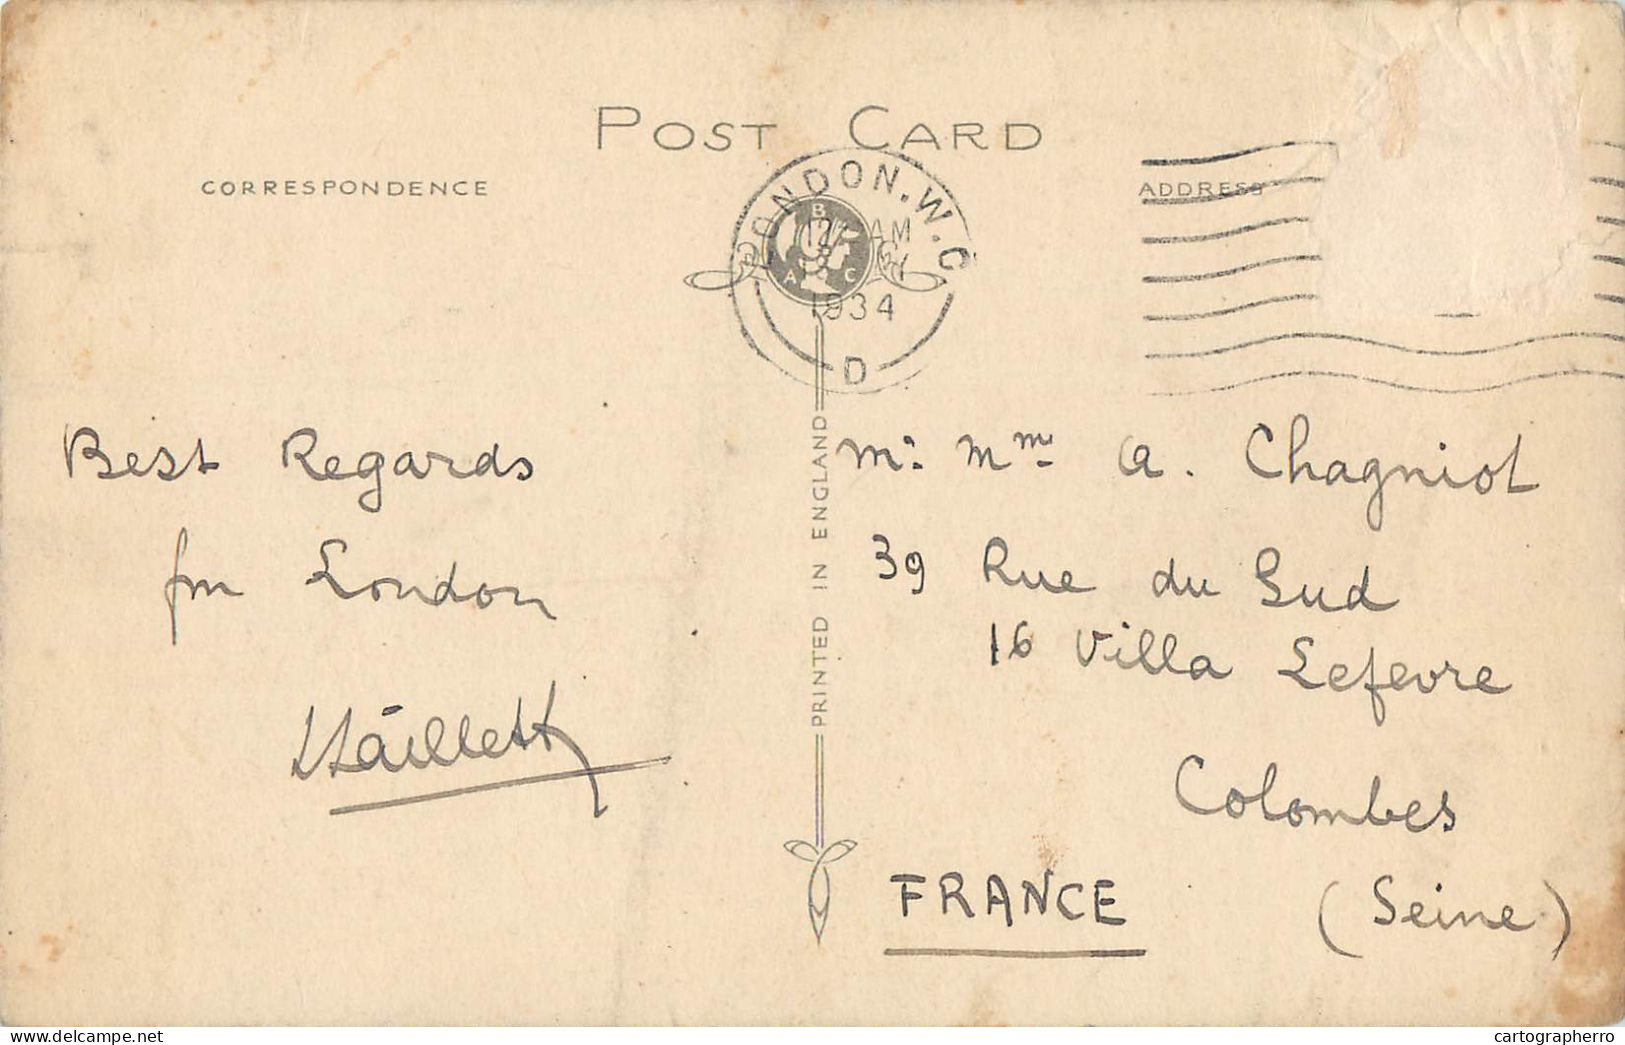 POST CARD
CORRESPONDENCE
ADDRESS
LONDON. W. C
12 AM
1934
D
A B C
PRINTED IN ENGLAND
Best Regards
fm London
M. Mme. A. Chagniot
39 Rue du Sud
16 Villa Lefevre
Colombes
FRANCE (Seine)
cartographerro